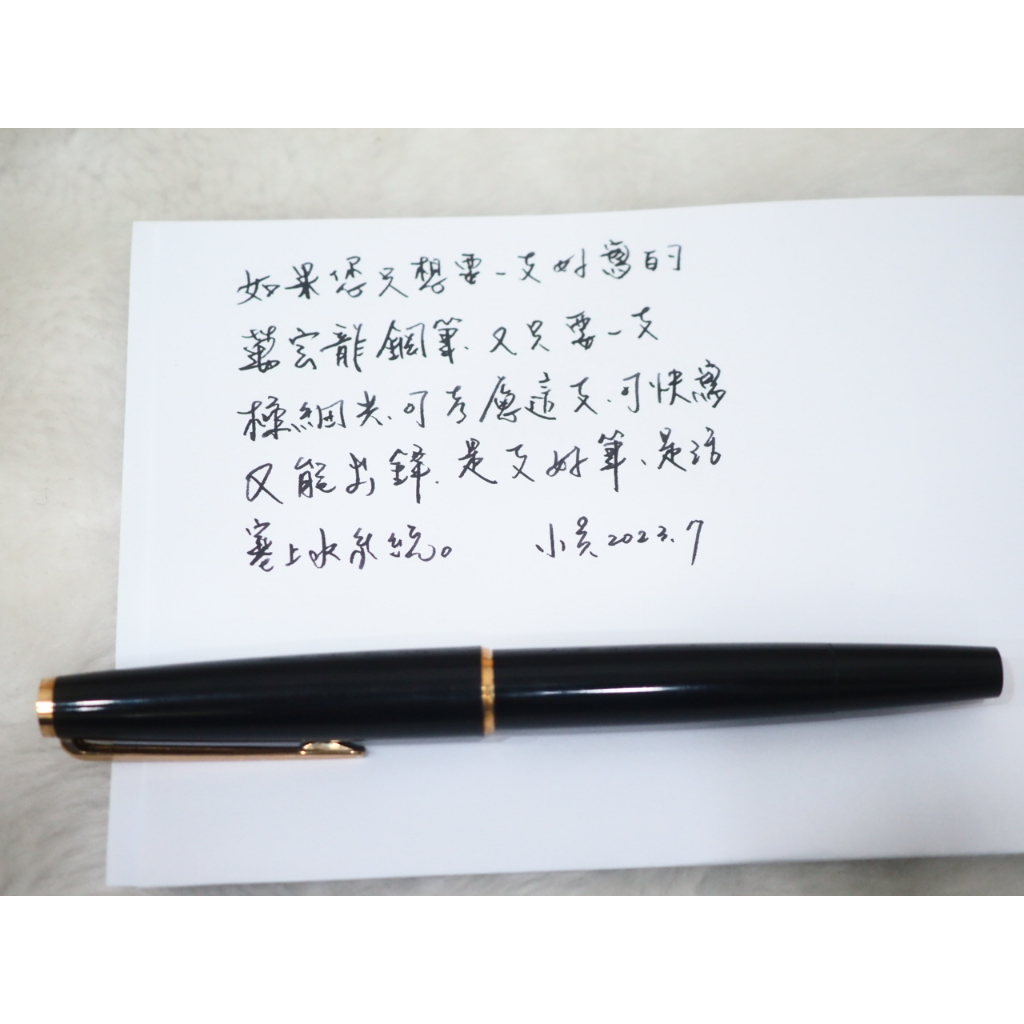 如果您只想要一支好寫的
萬宝龍鋼筆、又只要一支
極細尖、可考慮這支、可快寫
又能出鋒、是支好筆、是活
塞上水系統。 小吳 2023.7